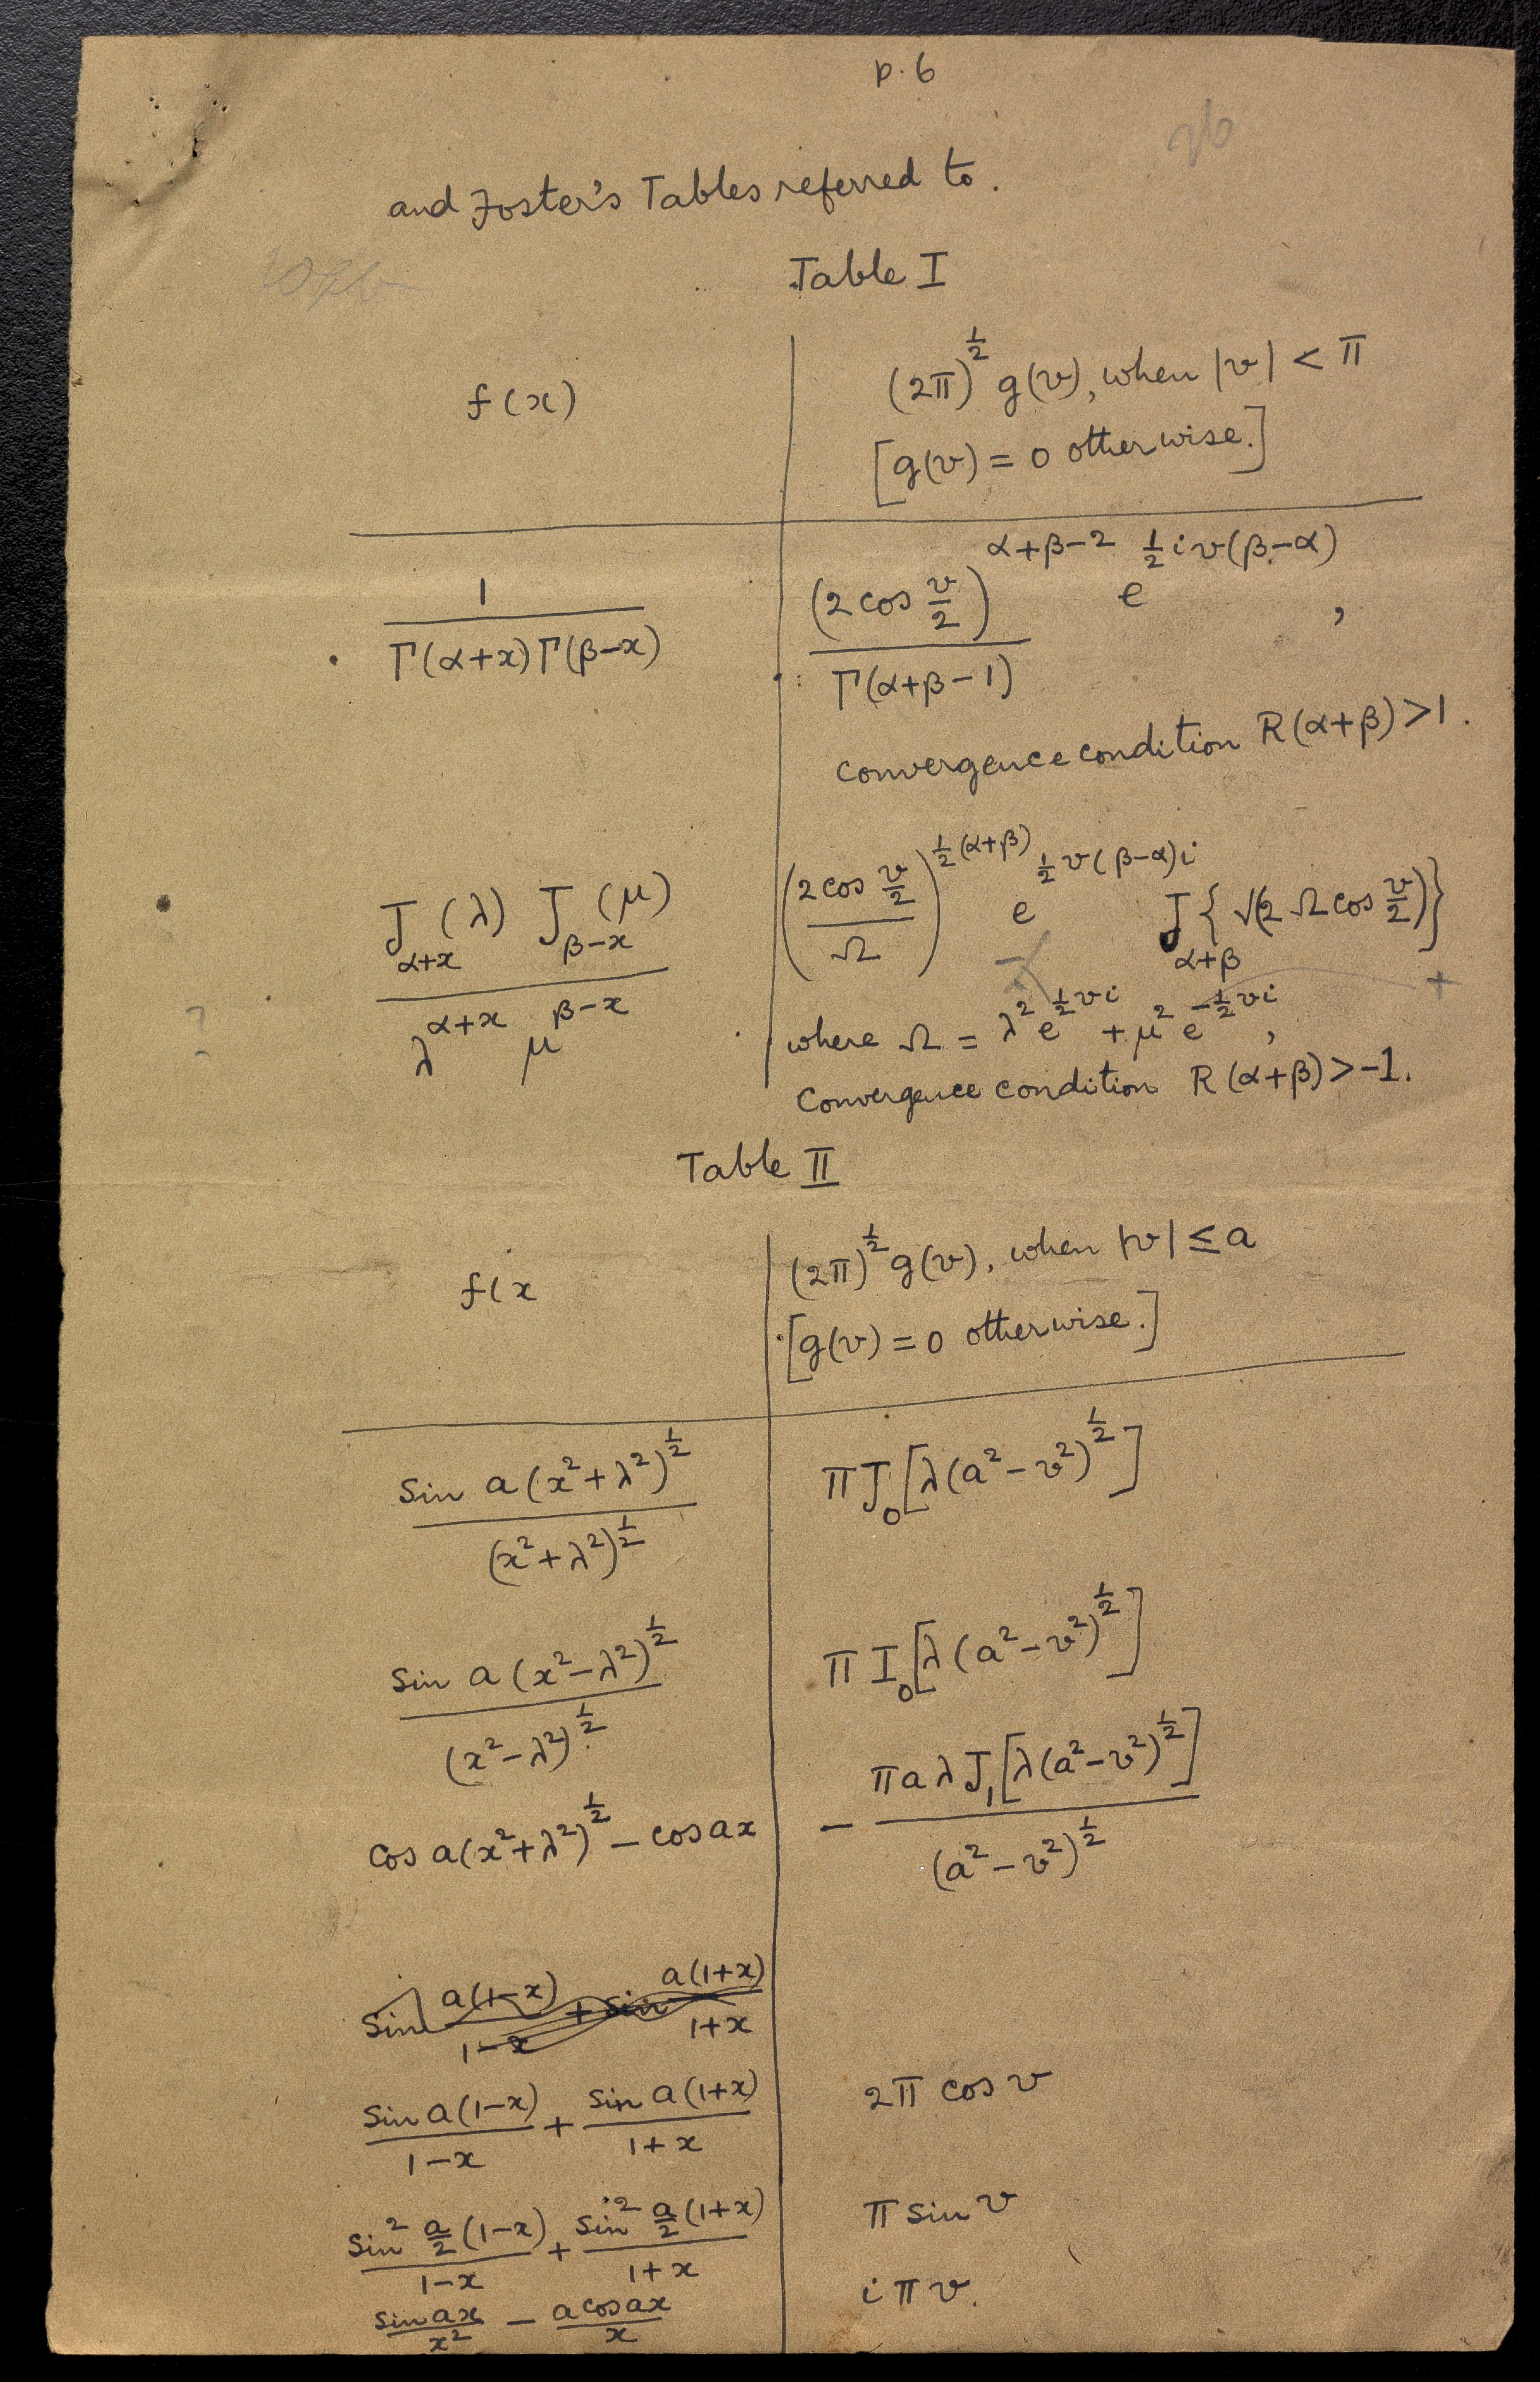 p. 6
26
and Foster's Tables referred to.
Table I
f(x) | (2π)^{1/2} g(v), when |v| < π
[g(v) = 0 otherwise.]
1 / Γ(α+x) Γ(β−x) | (2 cos v/2)^{α+β−2} / Γ(α+β−1) e^{½iv(β−α)},
convergence condition R(α+β) > 1.
J_{α+x}(λ) J_{β−x}(μ) / λ^{α+x} μ^{β−x} | (2 cos v/2 / Ω)^{½(α+β)} e^{½v(β−α)i} J_{α+β}{√(2 Ω cos v/2)}
?
where Ω = λ² e^{½vi} + μ² e^{−½vi},
Convergence condition R(α+β) > −1.
Table II
f(x | (2π)^{1/2} g(v), when |v| ≤ a
[g(v) = 0 otherwise.]
Sin a(x²+λ²)^{1/2} / (x²+λ²)^{1/2} | π J₀[λ(a²−v²)^{1/2}]
Sin a(x²−λ²)^{1/2} / (x²−λ²)^{1/2} | π I₀[λ(a²−v²)^{1/2}]
Cos a(x²+λ²)^{1/2} − cos ax | − πaλ J₁[λ(a²−v²)^{1/2}] / (a²−v²)^{1/2}
Sin a(1−x) / 1−x + sin a(1+x) / 1+x
Sin a(1−x) / 1−x + Sin a(1+x) / 1+x | 2π cos v
Sin² a/2 (1−x) / 1−x + Sin² a/2 (1+x) / 1+x | π sin v
Sin ax / x² − a cos ax / x | iπv.